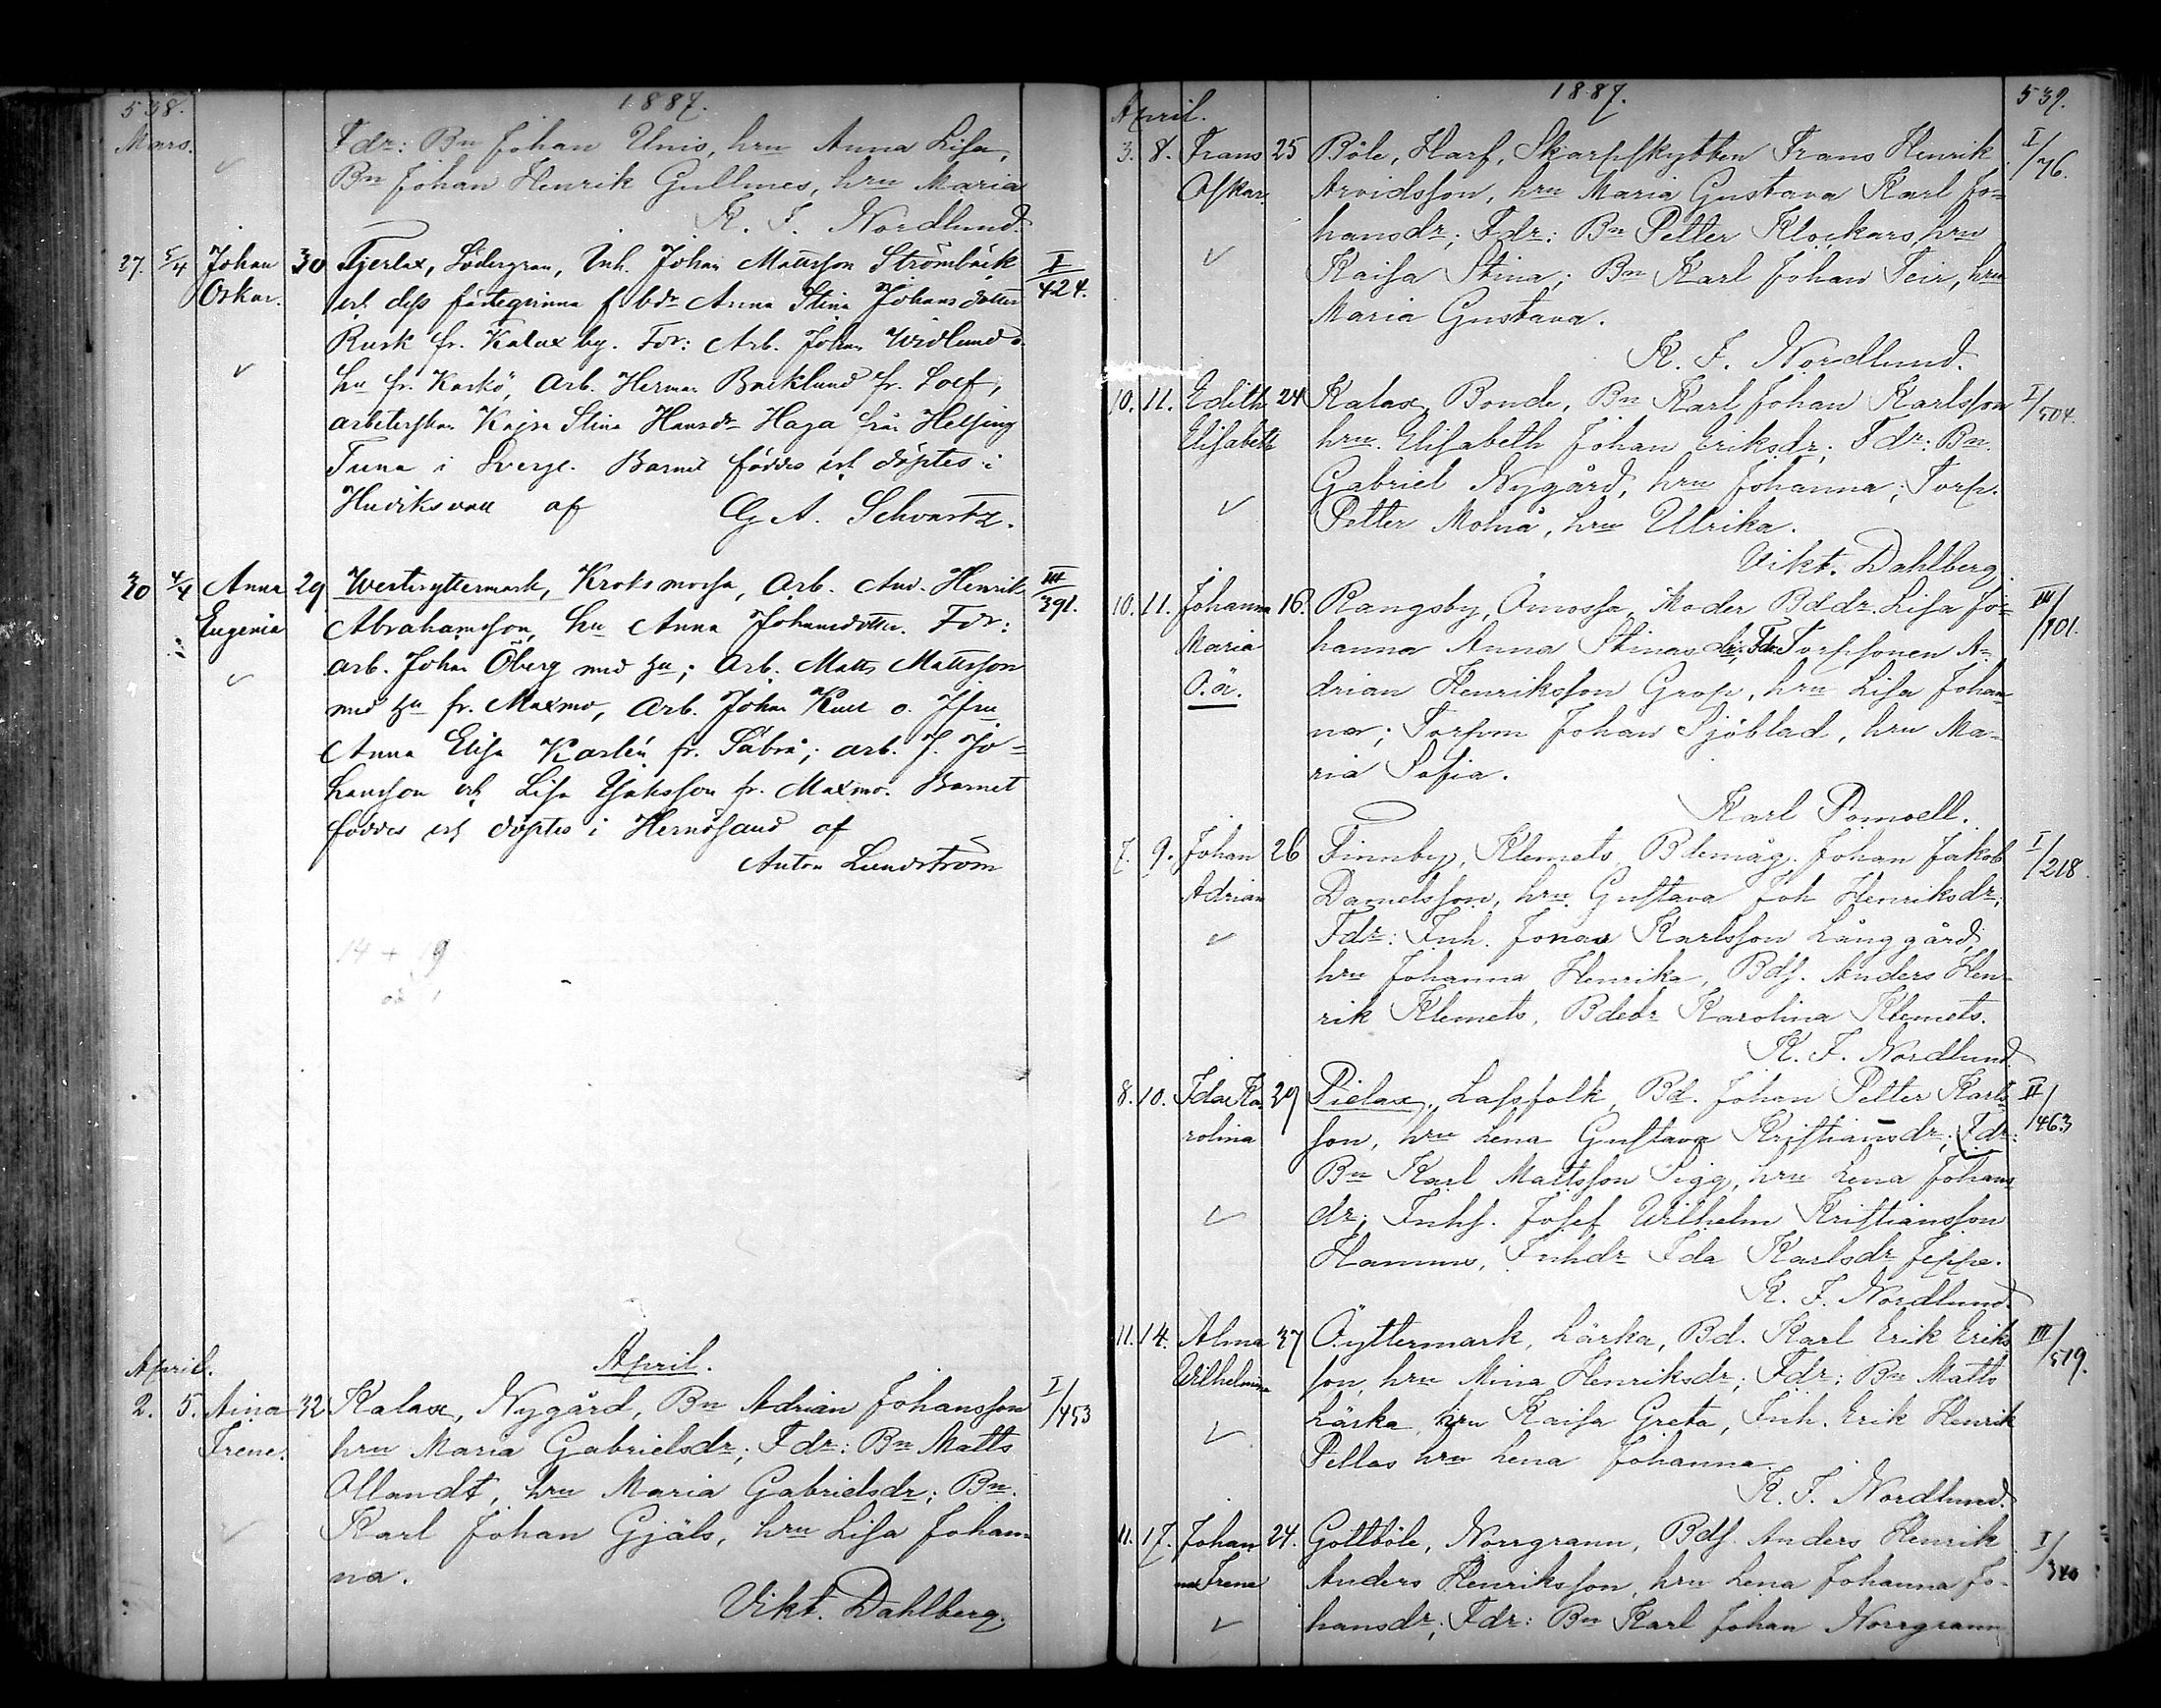 538. 1887.
Mars. Fdr: Bn Johan Unis, hru Anna Lisa,
Bn Johan Henrik Gullmes, hru Maria
K. F. Nordlund.
27. 5/4 Johan 30 Tjerlax, Södergran, Inh. Johan Mattsson Strömbäck I/424.
Oskar. och dess fästeqvinna f bdr Anna Stina Johansdotter
Rusk fr. Kalax by. Fdr: Arb. Johan Widlund o.
hu fr. Kaskö, Arb. Herman Backlund fr.
arbeterskan Kajsa Stina Hansdr Haga från Helsing
Tuna i Sverge. Barnet föddes och döptes i
Hudiksvall af G. A. Schvartz.
30 4/4 Anna 29 Westerytermark, Kroksmossa, Arb. And. Henrik III/391.
Eugenia Abrahamsson, hu Anna Johansdotter. Fdr:
arb. Johan Öberg med hu; Arb. Matts Mattsson
med hu fr. Maxmo, Arb. Johan o. Jfru
Anna Elisa Karlén fr. Säbrå; arb. J. Jo=
hansson och Lisa Isaksson fr. Maxmo. Barnet
föddes och döptes i Hernösand af
Anton Lundström
14 + 19
April. April.
2. 5. Aina 32 Kalax, Nygård, Bn Adrian Johansson I/453
Irene. hru Maria Gabrielsdr; Fdr: Bn Matts
Ollandt, hru Maria Gabrielsdr; Bn.
Karl Johan Gjäls, hru Lisa Johan-
na.
Vikt. Dahlberg.
1887. 539.
April.
3. 8. Frans 25 Böle, Harf, Skarpskytten Frans Henrik I/76.
Oskar. Arvidsson, hru Maria Gustava Karl Jo=
hansdr; Fdr: Bn Petter Klockars, hru
Kaisa Stina; Bn Karl Johan Teir, hru
Maria Gustava.
K. F. Nordlund.
10. 11. Edith 24 Kalax, Bonde, Bn Karl Johan Karlsson I/504.
Elisabeth hru. Elisabeth Johan Eriksdr; Fdr: Bn.
Gabriel Nygård, hru Johanna; Torp.
Petter Molnå, hru Ulrika.
Vikt. Dahlberg.
10. 11. Johanna 16. Rangsby, Ömossa, Moder Bddr. Lisa Jo= III/101.
Maria hanna Anna Stinas dr; Fdr: Torpsonen A=
O.ä. drian Henriksson Grop, hru Lisa Johan-
na; Torpm Johan Sjöblad, hru Ma-
ria Sofia.
Karl Pomoell.
7. 9. Johan 26 Finnby, Klemets, Bdemåg. Johan Jakob I/218.
Adrian Danielsson, hru Gustava Joh Henriksdr;
Fdr: Inh. Jonas Karlsson Långgård,
hru Johanna Henrika, Bds. Anders Hen-
rik Klemets, Bdedr Karolina Klemets.
K. F. Nordlund.
8. 10. Ida Ka 29 Pielax, Lassfolk, Bd. Johan Petter Karls II/463
rolina son, hru Lena Gustava Kristiansdr; Fdr:
Bn Karl Mattsson Pigg, hru Lena Johans
dr; Inhs. Josef Wilhelm Kristiansson
Hannus, Inhdr Ida Karlsdr Jeppe.
K. F. Nordlund.
11. 14. Alma 37 Öyttermark, Lärka, Bd. Karl Erik Eriks III/519.
Wilhelmina son, hru Mina Henriksdr; Fdr: Bn Matts
Lärka, hru Kaisa Greta, Inh. Erik Henrik
Pellas hru Lena Johanna.
K. F. Nordlund.
11. 17. Johan 24. Gottböle, Norrgrann, Bds. Anders Henrik I/340
na Irene Anders Henriksson, hru Lena Johanna Jo-
hansdr; Fdr: Bn Karl Johan Norrgrann